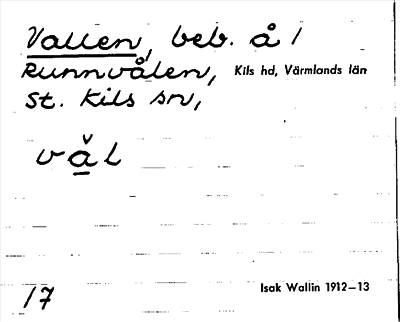 Vallen, beb. å 1
Runnvålen, Kils hd, Värmlands län
St. Kils sn,
vǎ̲l
17 Isak Wallin 1912–13